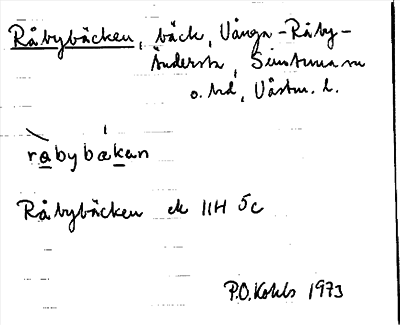 Råbybäcken, bäck, Vånga-Råby-
Andersta, Simtuna sn
o. hd, Västm. l.
rabybækan
Råbybäcken ek 11H 5c
P.O. Kohls 1973